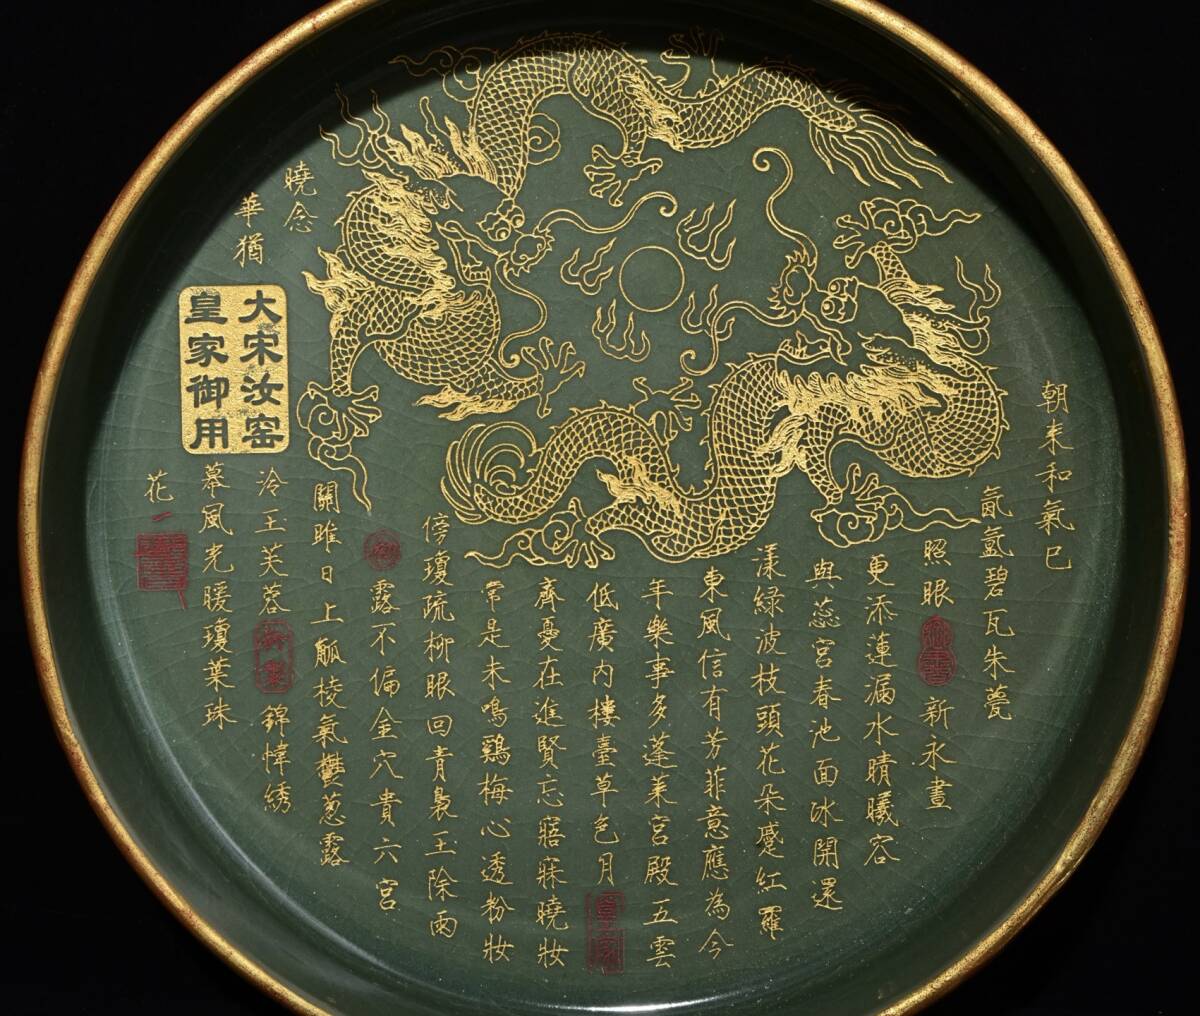 朝来和氣已
氤氲碧瓦朱甍
照眼
新永晝
更添蓮漏水晴曦容
與蕊宮春池面冰開還
漾緑波枝頭花朵蹙紅羅
東風信有芳菲意應為今
年樂事多蓬莱宮殿五雲
低廣内樓臺草色月
皇家
齊憂在進賢忘寤寐曉妝
常是未鳴鷄梅心透粉妝
傍瓊疏柳眼回青裊玉除雨
露不偏金穴貴六宮
曉念
關雎日上觚棱氣鬱葱露
華猶
大宋汝窑
皇家御用
泠玉芙蓉
錦幃綉
幕風光暖瓊葉珠
花一